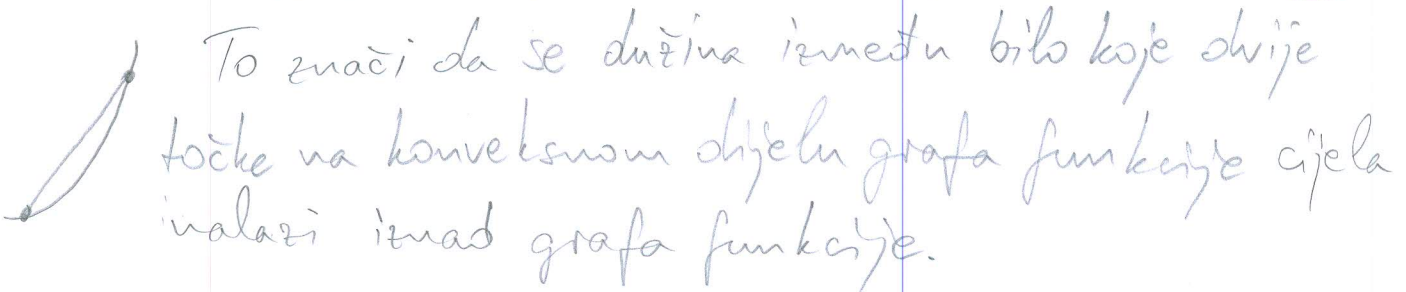 To znači da se dužina između bilo koje dvije
točke na konveksnom dijelu grafa funkcije cijela
nalazi iznad grafa funkcije.